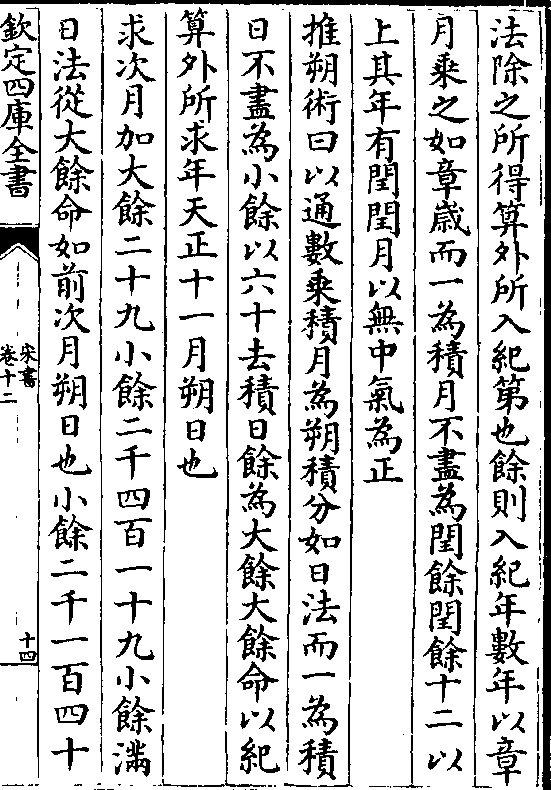 法除之所得算外所入紀第也餘則入紀年數年以章
月乘之如章歲而一為積月不盡為閏餘閏餘十二以
上其年有閏閏月以無中氣為正
推朔術曰以通數乘積月為朔積分如日法而一為積
日不盡為小餘以六十去積日餘為大餘大餘命以紀
算外所求年天正十一月朔日也
求次月加大餘二十九小餘二千四百一十九小餘滿
日法從大餘命如前次月朔日也小餘二千一百四十
欽定四庫全書
宋書
卷十二
十四